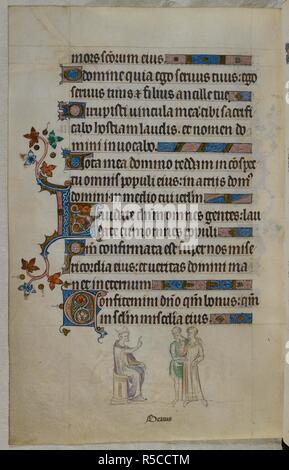 mors scorum eius.
O domine quia ego seruus tuus: ego
seruus tuus & filius ancille tue.
Dirupisti uincula mea: tibi sacrifi
cabo hostiam laudis. et nomen do
mini inuocabo.
Uota mea domino reddam in cōspec
tu omnis populi eius: in atriis dom'
domini in medio tui ierlm.
Laudate dnm omnes gentes: lau
date eum omnes populi.
Qm confirmata est super nos mise
ricordia eius: et ueritas domini ma
net in eternum.
Confitemini dno qm bonus: qm
in sclm miscdia eius.
alamy
R5CCTM